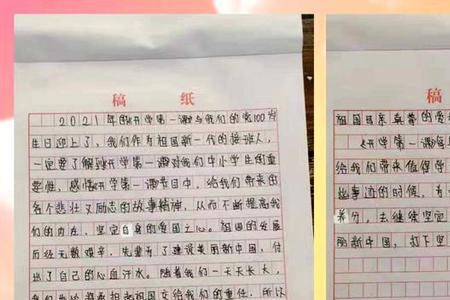 稿 纸
2021年的《开学第一课》与我们的党100岁
生日迎上了，我们作为祖国新一代的接班人，
一定要了解《开学第一课》对我们中小学生的重
要性，感悟《开学第一课》节目中，给我们带来的
各个悲壮又励志的故事精神，从而不断提高我
们的内在，坚定自身的爱国之心。祖国的发展
历经无数艰辛，先辈为了建设美丽新中国，付
出了自己的心血汗水。随着我们一天天长大，
祖国交给我们的重任，所以
稿
祖国母亲最尊的爱
《开学第一课》每
给我们带来值得学
故事迹的时候，有
养分，去继续坚定
丽新中国，打下坚